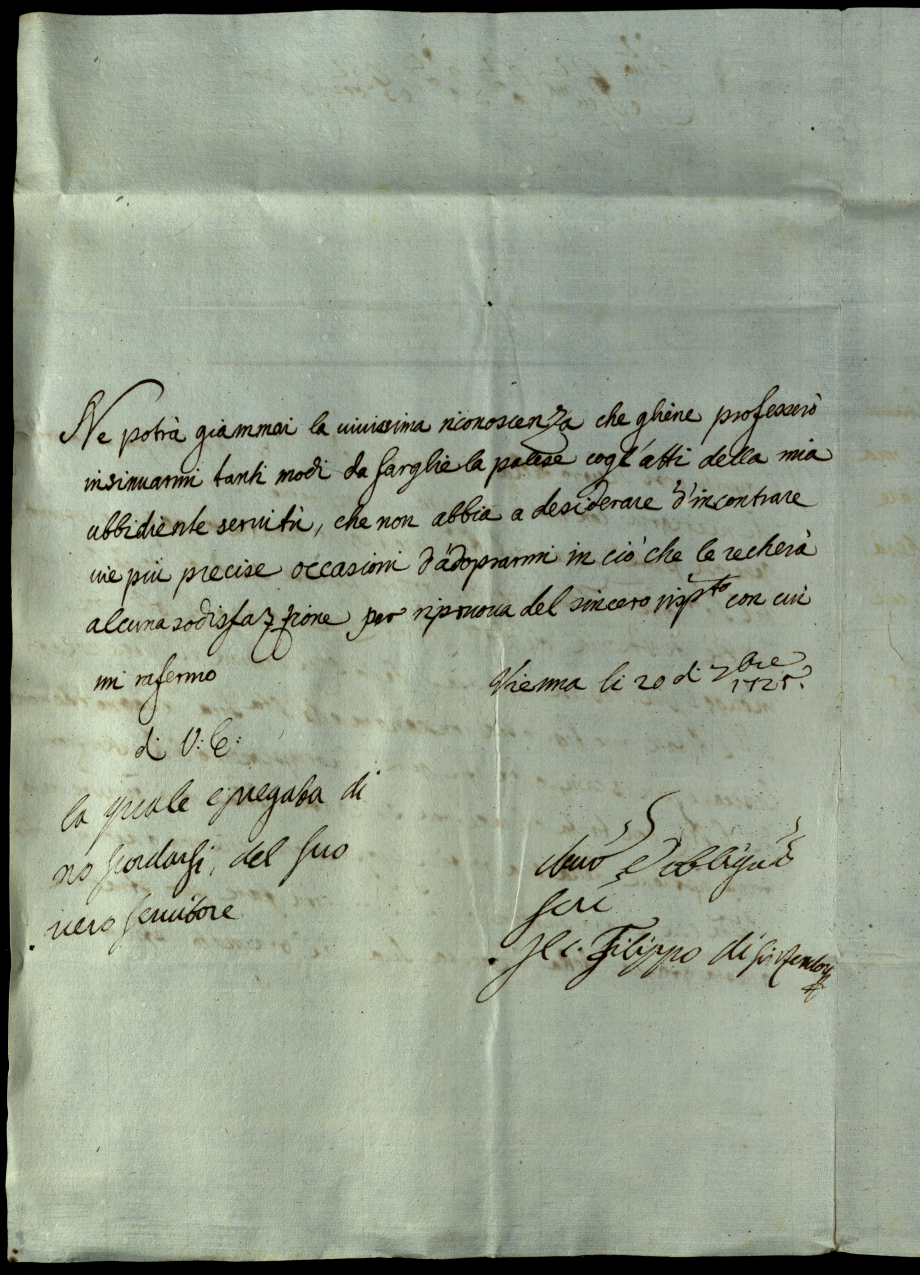 Ne potrà giammai la viuissima riconoscenza che gliène professerò
insinuarmi tanti modi da farglie la palese cogl'atti della mia
ubbidiente seruitù, che non abbia a desiderare d'incontrare
vie più precise occasioni d'adoprarmi in ciò che le recherà
alcuna sodisfazzione per riprouua del sincero rispto con cui
mi rafermo
Vienna li 20 di 7bre 1725.
di V: E:
la quale e pregata di
no scordarsi, del suo
vero seruitore
Deuo ed obligato
Filippo di